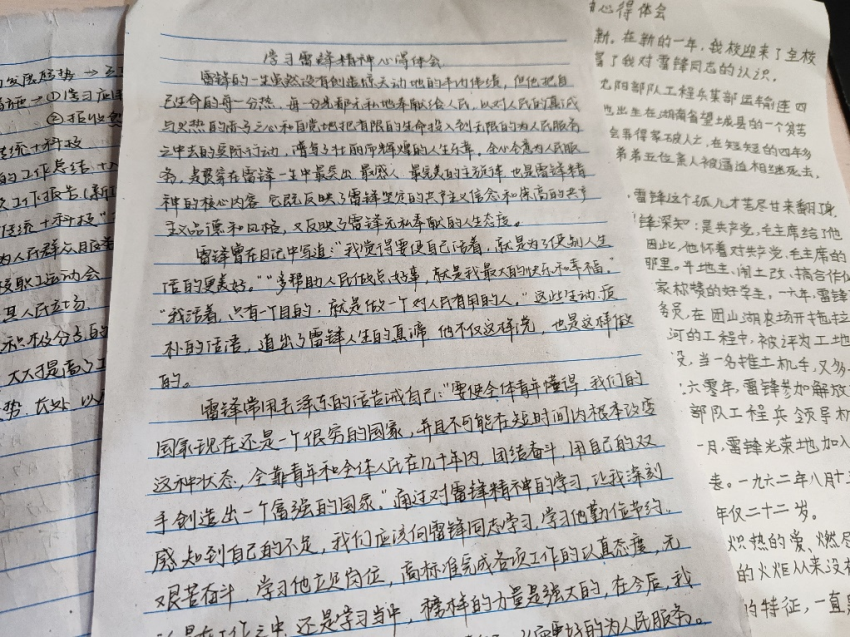 学习雷锋精神心得体会
雷锋的一生虽然没有创造惊天动地的丰功伟绩,但他把自
己生命的每一分热、每一分光都无私地奉献给人民,以对人民的真诚
与火热的赤子之心和自觉地把有限的生命投入到无限的为人民服务
之中去的实际行动,谱写了壮丽而辉煌的人生乐章。全心全意为人民服
务,是贯穿在雷锋一生中最突出、最感人、最完美的主旋律,也是雷锋精
神的核心内容,它既反映了雷锋坚定的共产主义信念和崇高的共产
主义品德和风格,又反映了雷锋无私奉献的人生态度。
雷锋曾在日记中写道:“我觉得要使自己活着,就是为了使别人生
活的更美好。”“多帮助人民做点好事,就是我最大的快乐和幸福。”
“我活着,只有一个目的,就是做一个对人民有用的人。”这些生动、质
朴的话语,道出了雷锋人生的真谛,他不仅这样说,也是这样做
的。
雷锋常用毛泽东的话告诫自己:“要使全体青年懂得,我们的
国家现在还是一个很穷的国家,并且不可能在短时间内根本改变
这种状态,全靠青年和全体人民在几十年内,团结奋斗,用自己的双
手创造出一个富强的国家。”通过对雷锋精神的学习,让我深刻
感知到自己的不足,我们应该向雷锋同志学习,学习他勤俭节约、
艰苦奋斗,学习他立足岗位,高标准完成各项工作的认真态度,无
论是在工作之中,还是学习当中,榜样的力量是强大的,在今后,我
更好的为人民服务。
心得体会
新。在新的一年,我校迎来了全校
了我对雷锋同志的认识。
沈阳部队工程兵某部运输连四
他出生在湖南省望城县的一个贫苦
得家破人亡,在短短的四年多
弟弟五位亲人被逼迫相继死去,
雷锋这个孤儿才苦尽甘来翻了身。
雷锋深知:是共产党,毛主席给了他
因此,他怀着对共产党、毛主席的
那里。平地主、闹土改、搞合作化
家称赞的好学生,一六年,雷锋
务员,在团山湖农场开拖拉
河的工程中,被评为工地
没,当一名推土机手,又多
六零年,雷锋参加解放
部队工程兵领导机
一月,雷锋光荣地加入
去。一九六二年八月十五
年仅二十二岁。
炽热的爱、燃尽
的火炬从来没有
的特征,一直
发展趋势→
→①学习应
②
传统+科技
的工作总结+
工作报告(新
传统+科技”
为人民群众
校职工运动会
人民立场,
积极分子的
大大提高了